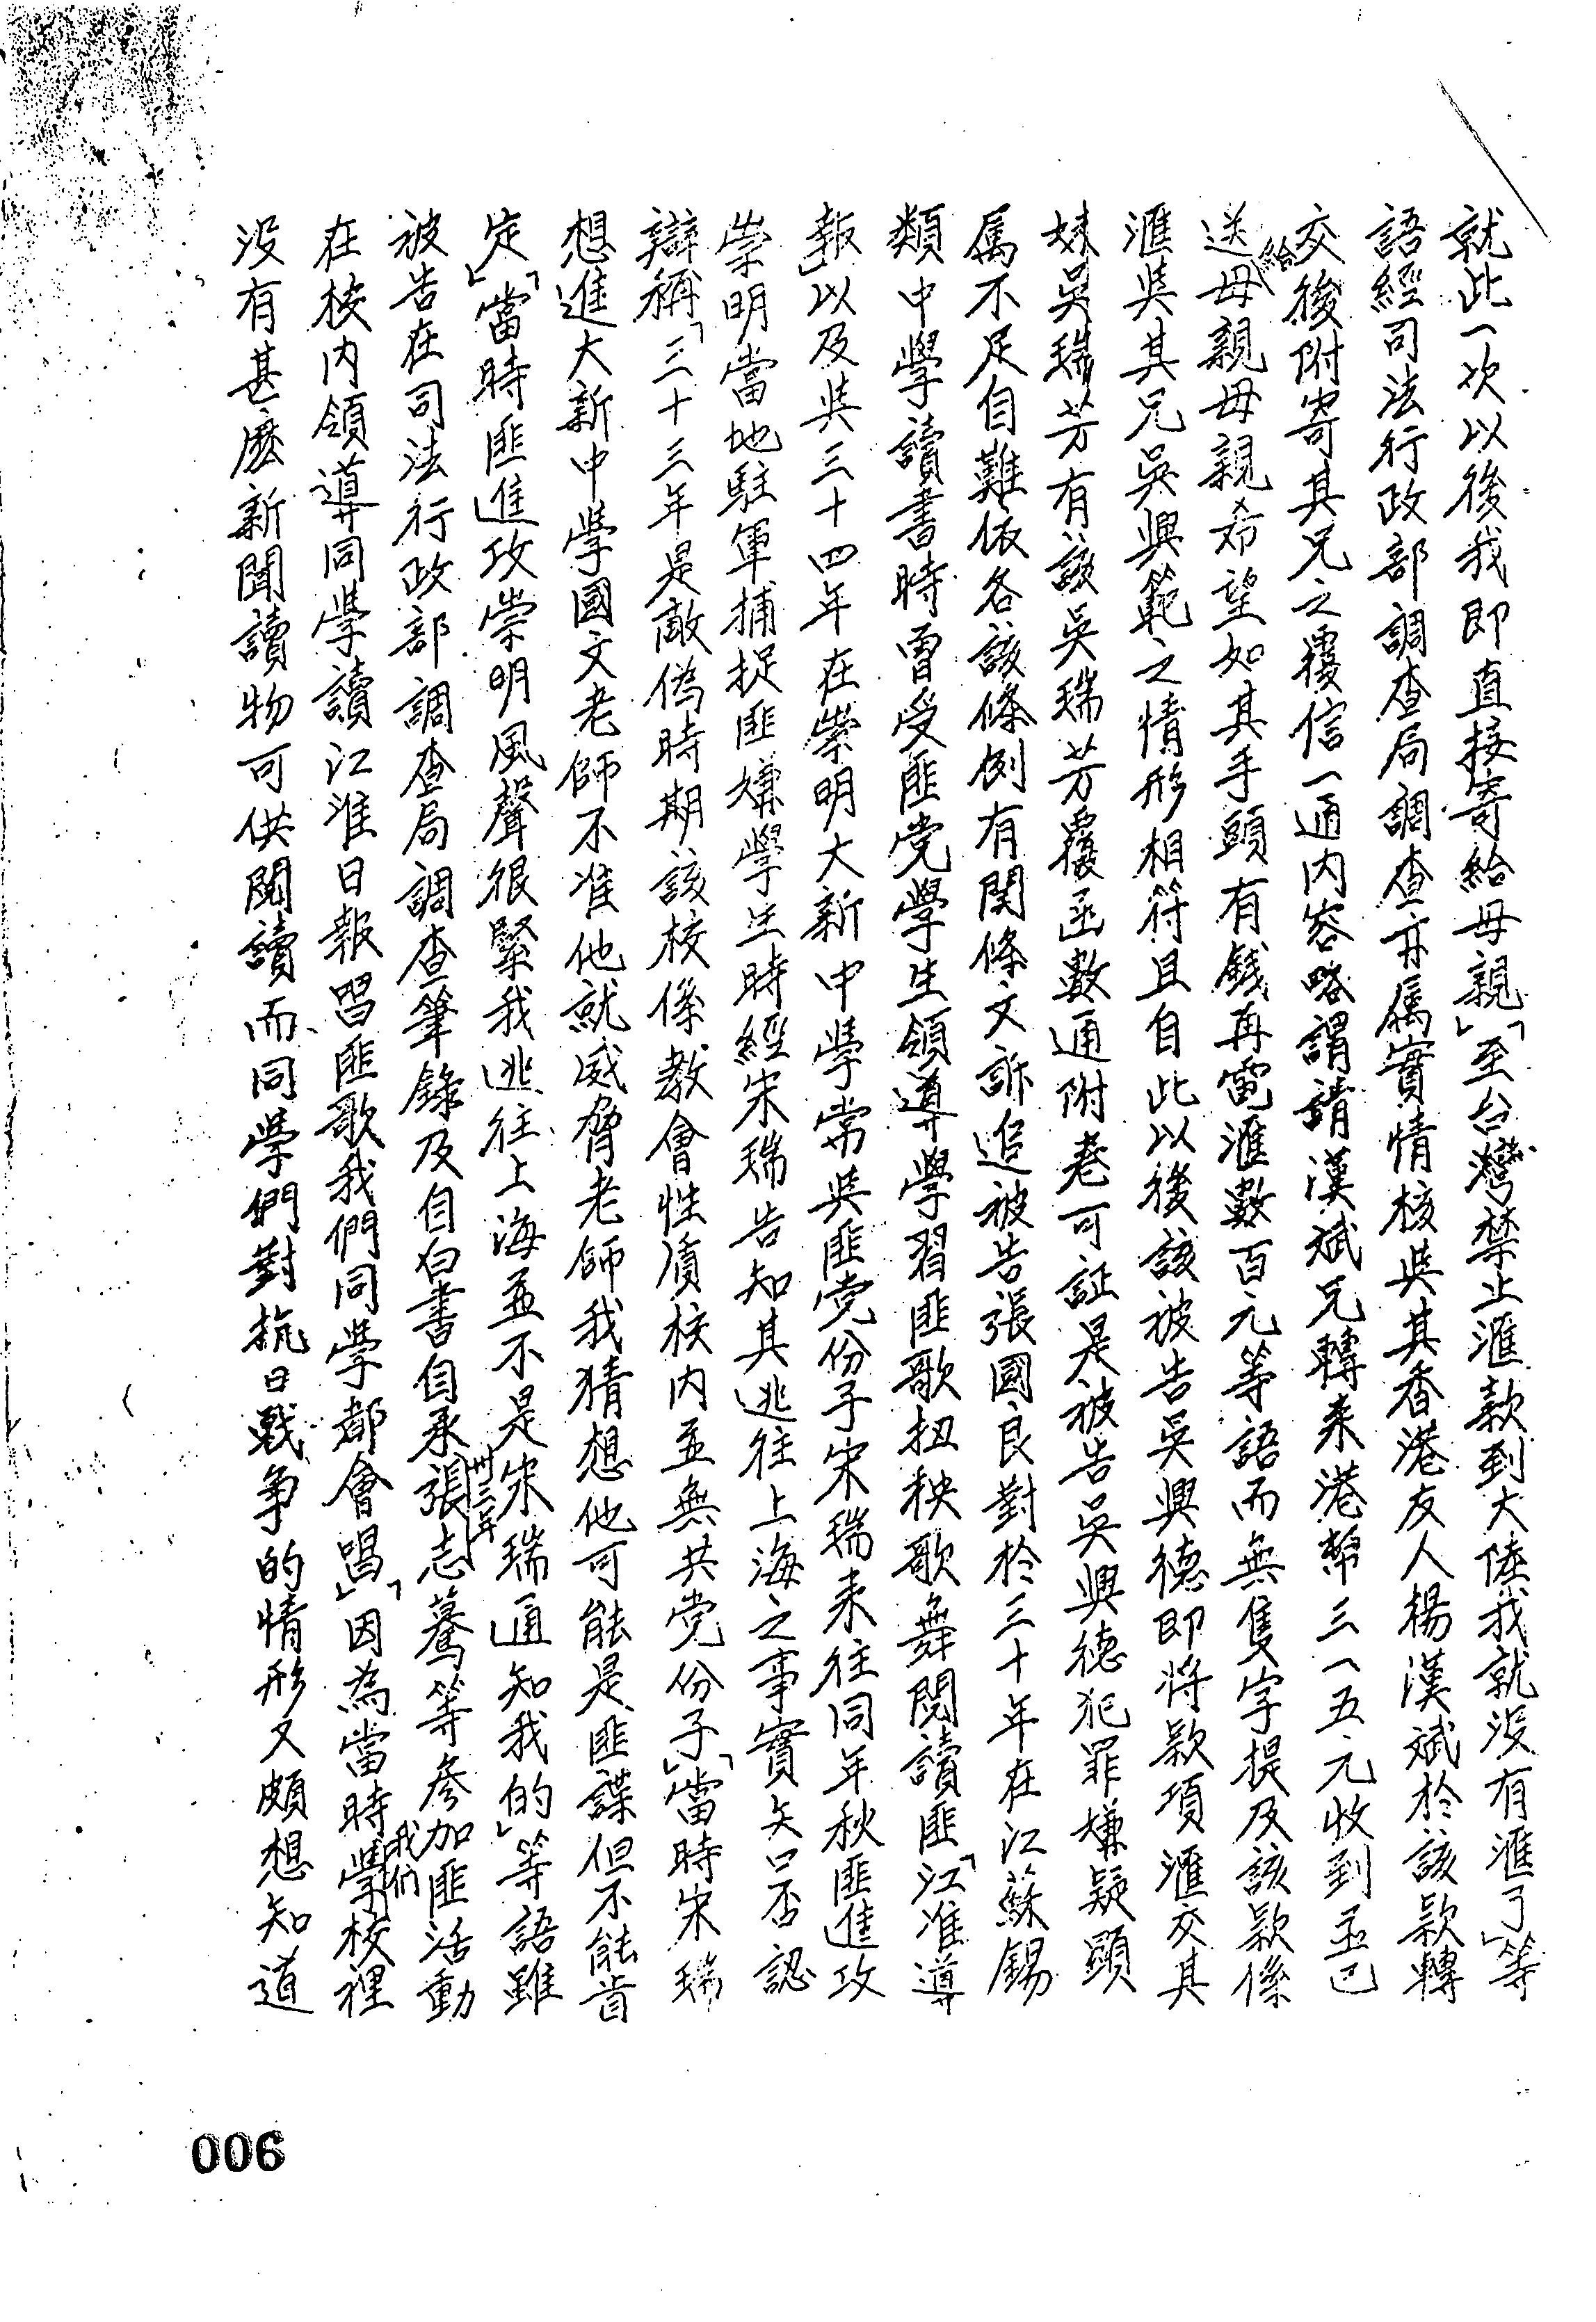 就此一次以後我即直接寄給母親」「至台灣禁止滙款到大陸我就没有滙了」等
語經司法行政部調查局調查亦属實情核吳其香港友人楊漢斌於該款轉
交後附寄其兄之覆信一通内容略謂請漢斌兄轉来港幣三一五元收到函已
送給母親母親希望如其手頭有錢再電滙數百元等語而無隻字提及該款係
滙吳其兄吳興範之情形相符且自此以後該被告吳興德即将款項滙交其
妹吳瑞芳有該吳瑞芳覆函數通附卷可証是被告吳興德犯罪嫌疑顕
属不足自難依各該條例有関條文訴追被告張國良對於三十年在江蘇錫
類中學讀書時曾受匪党學生領導學習匪歌扭秧歌舞閱讀匪「江淮導
報」以及吳三十四年在崇明大新中學常吳匪党份子宋瑞来往同年秋匪進攻
崇明當地駐軍捕捉匪嫌學生時經宋瑞告知其逃往上海之事實矢口否認
辯稱「三十三年是敵偽時期該校係教會性质校内並無共党份子」「當時宋瑞
想進大新中學國文老師不准他就威脅老師我猜想他可能是匪諜但不能肯
定」「當時匪進攻崇明風聲很緊我逃往上海並不是宋瑞通知我的」等語雖
被告在司法行政部調查局調查筆錄及自白書自承卅三年張志騫等参加匪活動
在校内領導同學讀江淮日報唱匪歌我們同學都會唱」「因為當時我们學校裡
没有甚麽新聞讀物可供閱讀而同學們對抗日戰争的情形又頗想知道
006